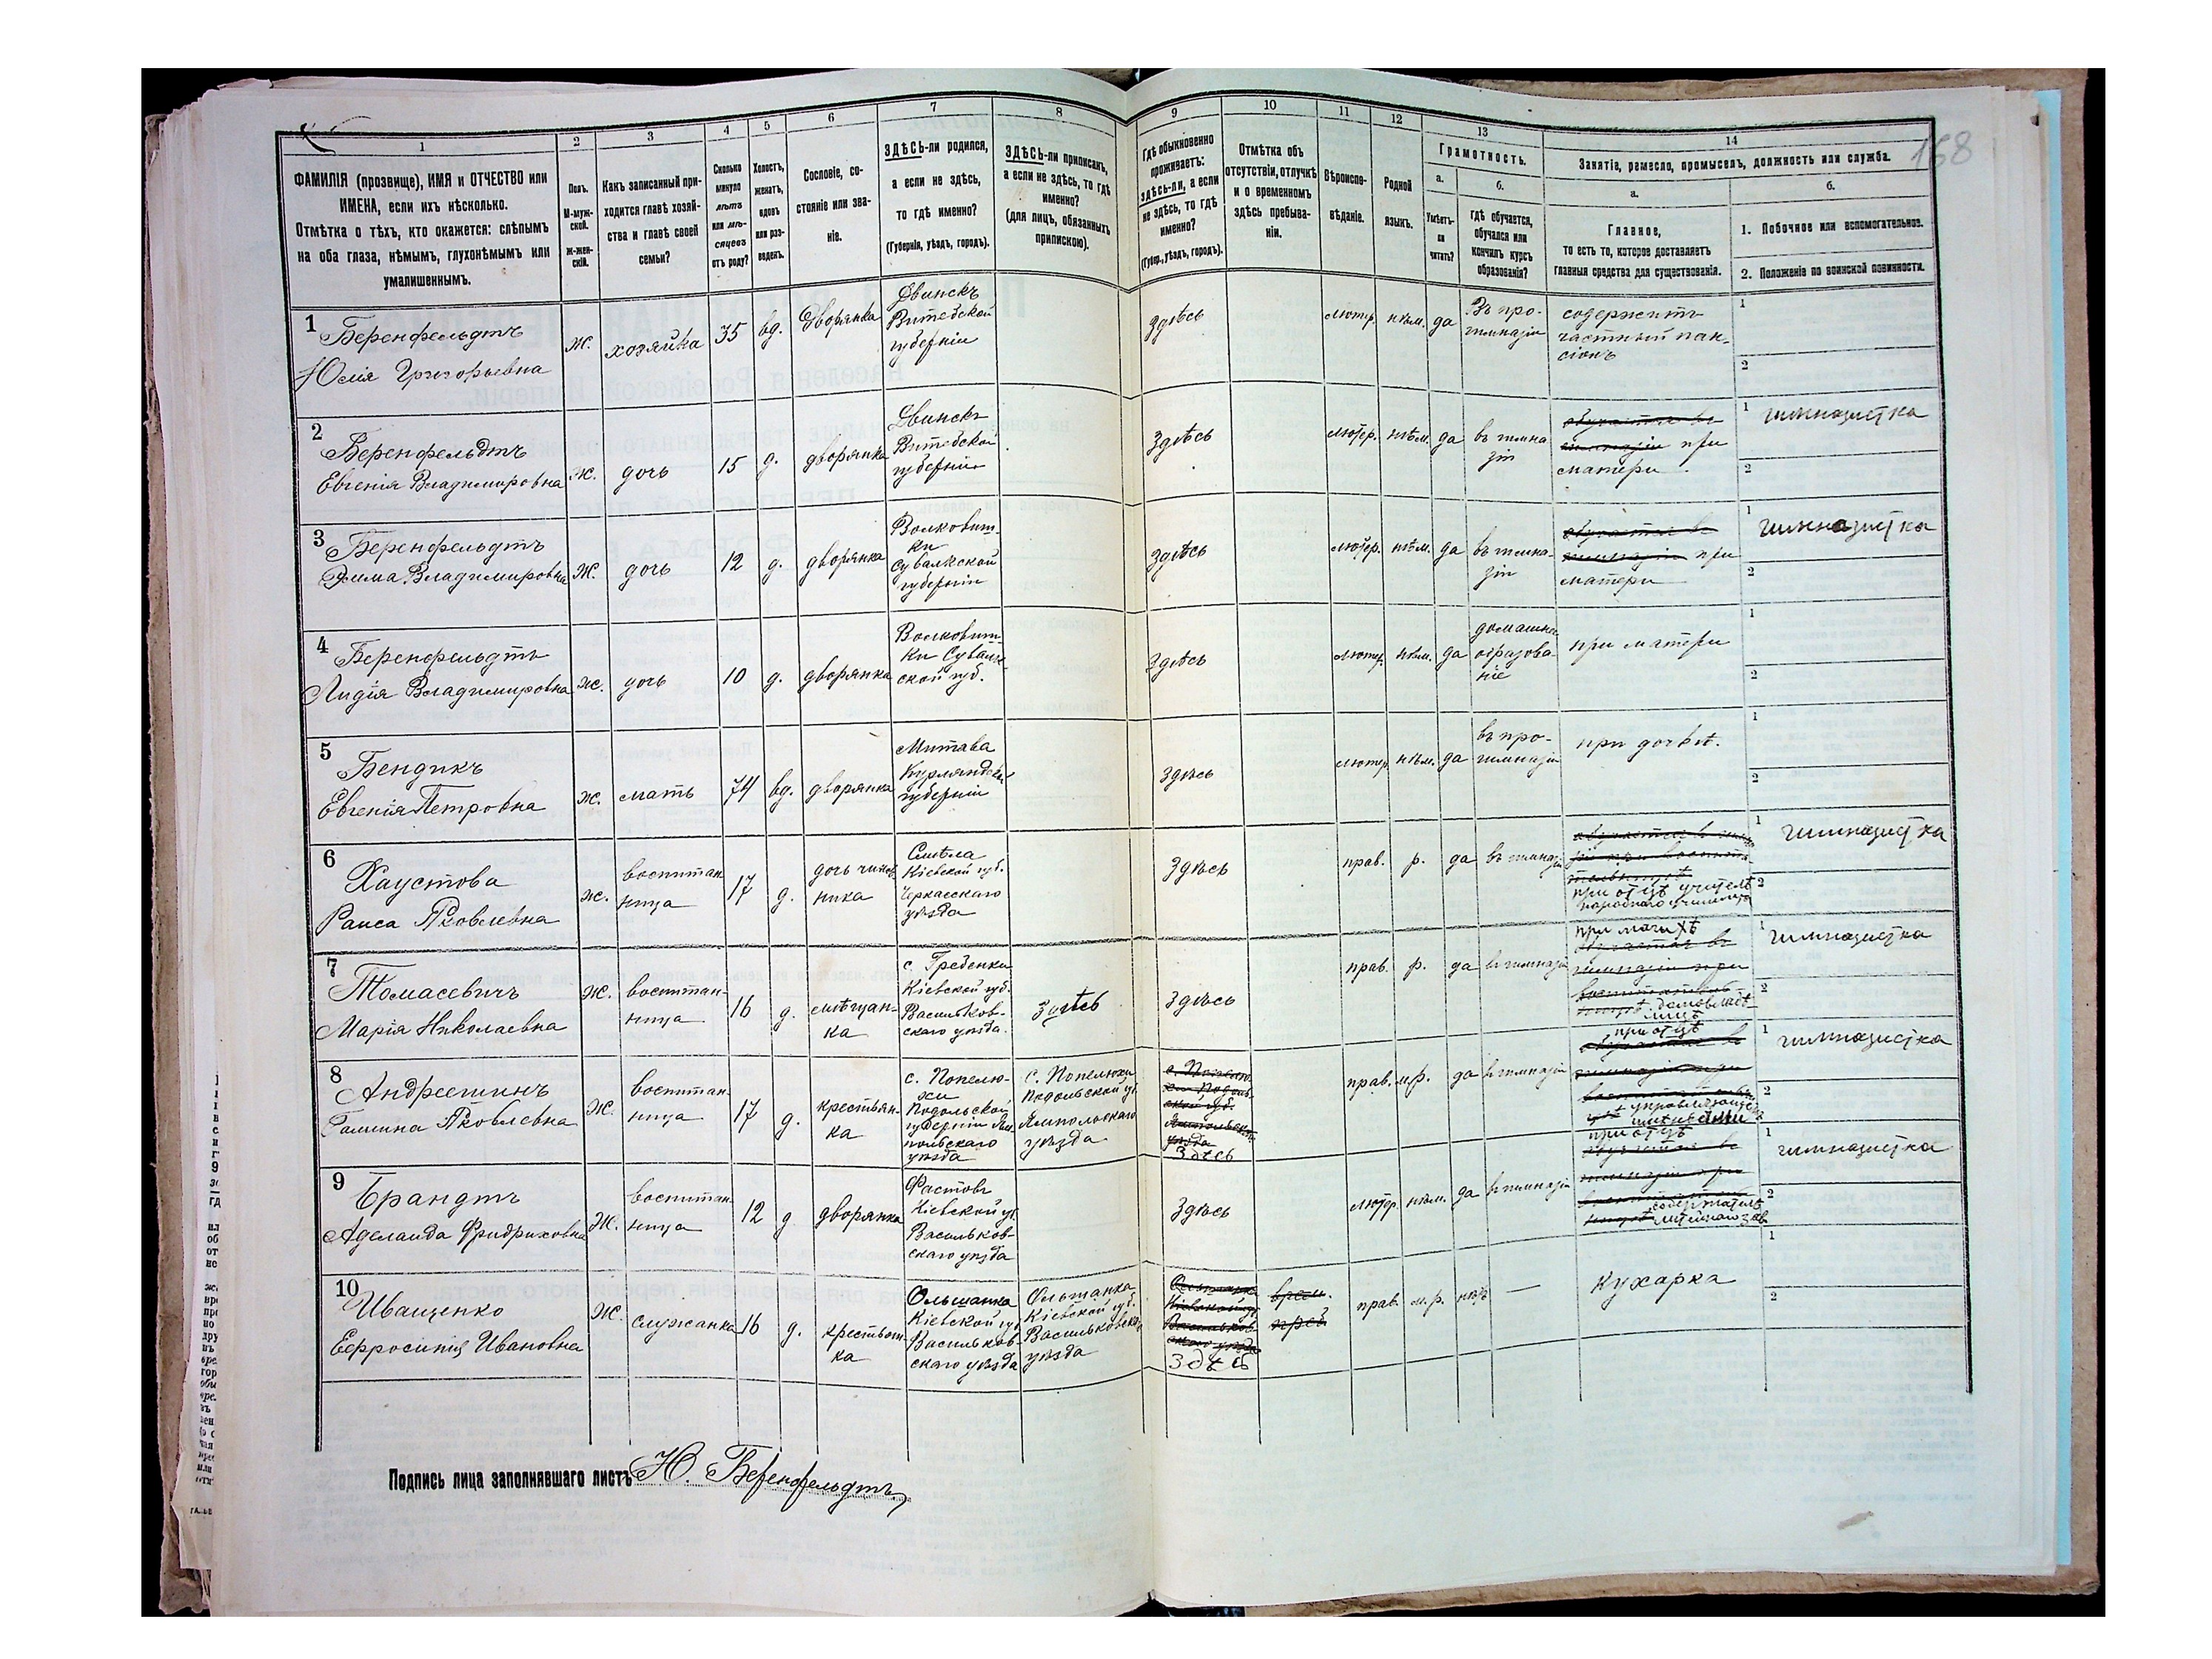 168
1 2 3 4 5 6 7 8 9 10 11 12 13 14
ФАМИЛІЯ (прозвище), ИМЯ и ОТЧЕСТВО или
ИМЕНА, если ихъ нѣсколько.
Отмѣтка о тѣхъ, кто окажется: слѣпымъ
на оба глаза, нѣмымъ, глухонѣмымъ или
умалишеннымъ.
Полъ.
М-муж-
ской.
Ж-жен-
скій.
Какъ записанный при-
ходится главѣ хозяй-
ства и главѣ своей
семьи?
Сколько
минуло
лѣтъ
или мѣ-
сяцевъ
отъ роду?
Холостъ,
женатъ,
вдовъ
или раз-
веденъ.
Сословіе, со-
стояніе или зва-
ніе.
ЗДѢСЬ-ли родился,
а если не здѣсь,
то гдѣ именно?
(Губернія, уѣздъ, городъ).
ЗДѢСЬ-ли приписанъ,
а если не здѣсь, то гдѣ
именно?
(для лицъ, обязанныхъ
припискою).
Гдѣ обыкновенно
проживаетъ:
здѣсь-ли, а если
не здѣсь, то гдѣ
именно?
(Губер., уѣздъ, городъ).
Отмѣтка объ
отсутствіи, отлучкѣ
и о временномъ
здѣсь пребыва-
ніи.
Вѣроиспо-
вѣданіе.
Родной
языкъ.
Грамотность.
а.
Умѣетъ-
ли
читать?
б.
Гдѣ обучается,
обучался или
кончилъ курсъ
образованія?
Занятія, ремесло, промыселъ, должность или служба.
а.
Главное,
то есть то, которое доставляетъ
главныя средства для существованія.
б.
1. Побочное или вспомогательное.
2. Положеніе по воинской повинности.
1
Беренфельдтъ
Юлія Григорьевна
Ж.
хозяйка
35
вд.
Дворянка
Двинскъ
Витебской
губерніи
Здѣсь
лютер.
нѣм.
да
Въ про-
гимназіи
содержитъ
частный пан-
сіонъ
1
2
2
Беренфельдтъ
Евгенія Владимировна
Ж.
дочь
15
д.
дворянка
Двинскъ
Витебской
губерніи
Здѣсь
лютер.
нѣм.
да
въ гимна
зіи
обучается въ
гимназіи при
матери
1 гимназистка
2
3
Беренфельдтъ
Эмма Владимировна
Ж.
дочь
12
д.
дворянка
Волковыш-
ки
Сувалкской
губерніи
Здѣсь
лютер.
нѣм.
да
въ гимна-
зіи
обучается въ
гимназіи при
матери
1 гимназистка
2
4
Беренфельдтъ
Лидія Владимировна
ж.
дочь
10
д.
дворянка
Волковыш
ки Сувалк
ской губ.
Здѣсь
лютер.
нѣм.
да
домашнее
образова
ніе
при матери
1
2
5
Бендикъ
Евгенія Петровна
ж.
мать
74
вд.
дворянка
Митава
Курляндской
губерніи
здѣсь
лютер.
нѣм.
да
въ про-
гимназіи
при дочкѣ.
1
2
6
Хаустова
Раиса Яковлевна
ж.
воспитан
ница
17
д.
дочь чинов
ника
Смѣла
Кіевской губ.
Черкасскаго
уѣзда
Здѣсь
прав.
р.
да
въ гимназіи
при отцѣ учителѣ
народнаго училища
1 гимназистка
2
7
Томасевичъ
Марія Николаевна
Ж.
воспитан-
ница
16
д.
мѣщан-
ка
с. Гребенки
Кіевской губ.
Васильков-
скаго уѣзда.
Здѣсь
Здѣсь
прав.
р.
да
въ гимназіи
при мачихѣ
обучается въ
гимназіи при
домовладѣ-
лицѣ
1 гимназистка
2
8
Андреешинъ
Галина Яковлевна
Ж.
воспитан-
ница
17
д.
крестьян-
ка
с. Попелю-
хи
Подольской
губерніи Ям
польскаго
уѣзда
с. Попелюхи
Подольской губ.
Ямпольскаго
уѣзда
Здѣсь
прав.
м.р.
да
въ гимназіи
при отцѣ
обучается въ
гимназіи при
управляющемъ
имѣніями
1 гимназистка
2
9
Брандтъ
Аделаида Фридриховна
Ж.
воспитан-
ница
12
д
дворянка
Фастовъ
Кіевской губ.
Васильков-
скаго уѣзда
Здѣсь
лютер.
нѣм.
да
въ гимназіи
при отцѣ
обучается въ
гимназіи при
содержателѣ
литейнаго зав.
1 гимназистка
2
10
Иващенко
Ефросинія Ивановна
Ж.
служанка
16
д.
крестьян-
ка
Ольшанка
Кіевской губ.
Васильков-
скаго уѣзда
Ольшанка
Кіевской губ.
Васильковскаго
уѣзда
Ольшанка
Кіевской губ.
Васильков-
скаго уѣзда
Здѣсь
врем.
преб.
прав.
м.р.
нѣтъ
—
кухарка
1
2
Подпись лица заполнявшаго листъ Ю. Беренфельдтъ